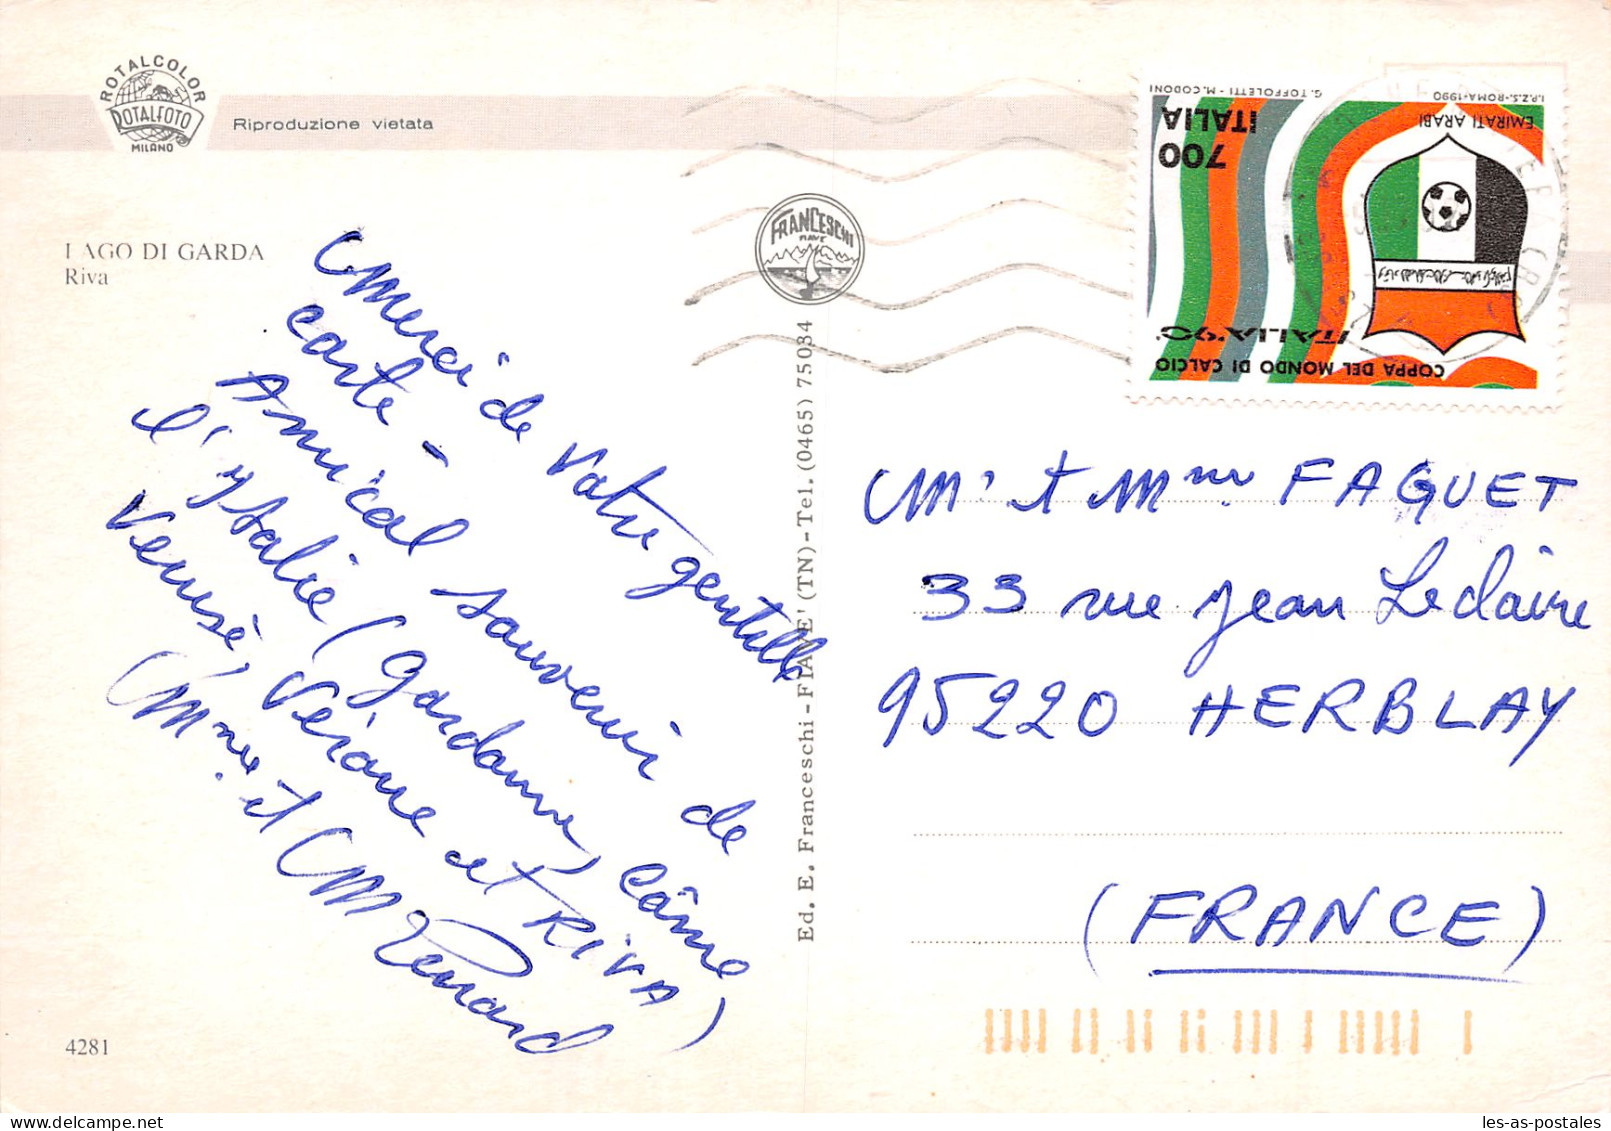 ROTALCOLOR
ROTALFOTO
MILANO
Riproduzione vietata
LAGO DI GARDA
Riva
Merci de votre gentille
carte -
Amical souvenir de
l'ytalie (gardanne, Côme
Venise, Vérone et RIVA)
Mme et M Renard
4281
FRANCESCHI
FIAVE'
Ed. E. Franceschi - FIAVE' (TN) - Tel. (0465) 75034
I.P.Z.S.-ROMA-1990
G. TOFFOLETTI - M. CODONI
EMIRATI ARABI
ITALIA
700
ITALIA'90
COPPA DEL MONDO DI CALCIO
Mr et Mme FAGUET
33 rue Jean Leclaire
95220 HERBLAY
(FRANCE)
les-as-postales